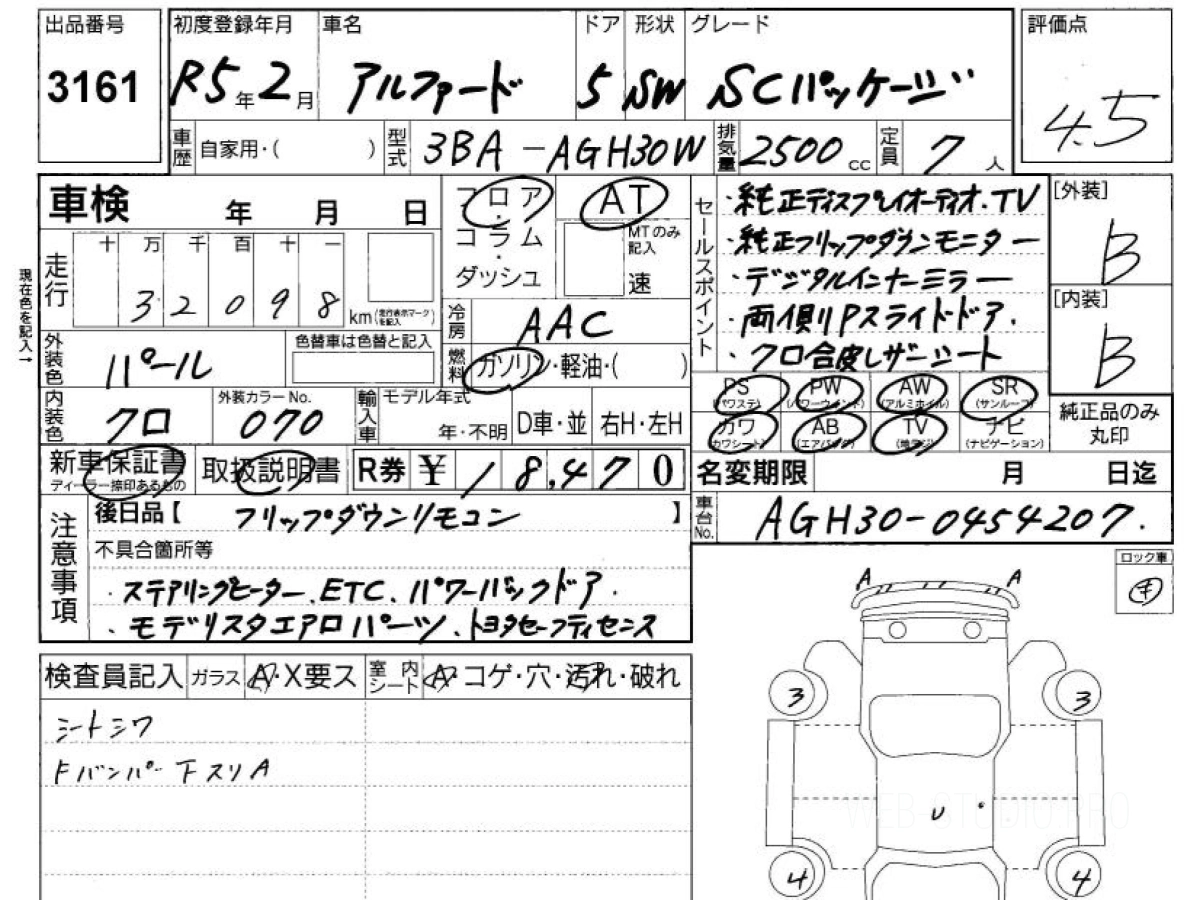 出品番号 初度登録年月 車名 ドア 形状 グレード 評価点
3161 R5年2月 アルファード 5 SW SCパッケージ 4.5
車歴 自家用・( ) 型式 3BA-AGH30W 排気量 2500cc 定員 7人
車検 年 月 日
フロア・コラム・ダッシュ AT
MTのみ記入 速
現在色を記入→
走行 十 万 千 百 十 一
3 2 0 9 8 km(走行表示マークを記入)
冷房 AAC
燃料 ガソリン・軽油・( )
外装色 パール 色替車は色替と記入
内装色 クロ 外装カラーNo. 070
輸入車 モデル年式 年・不明 D車・並 右H・左H
新車保証書 ディーラー捺印あるもの 取扱説明書 R券 ¥ 18,470
セールスポイント
・純正ディスプレイオーディオ.TV
・純正フリップダウンモニター
・デジタルインナーミラー
・両側Pスライドドア.
・クロ合皮レザーシート
[外装] B
[内装] B
PS (パワステ) PW (パワーウインド) AW (アルミホイル) SR (サンルーフ)
カワ (カワシート) AB (エアバッグ) TV (地デジ) ナビ (ナビゲーション)
純正品のみ丸印
名変期限 月 日迄
車台No. AGH30-0454207.
注意事項
後日品【 フリップダウンリモコン 】
不具合箇所等
・ステアリングヒーター.ETC.パワーバックドア.
・モデリスタエアロパーツ.トヨタセーフティセンス
ロック車
キ
検査員記入 ガラス A・X要ス 室内シート A・コゲ・穴・汚れ・破れ
シートシワ
Fバンパー下スリA
A A
3 3
U
4 4
WEB STUDIO PRO